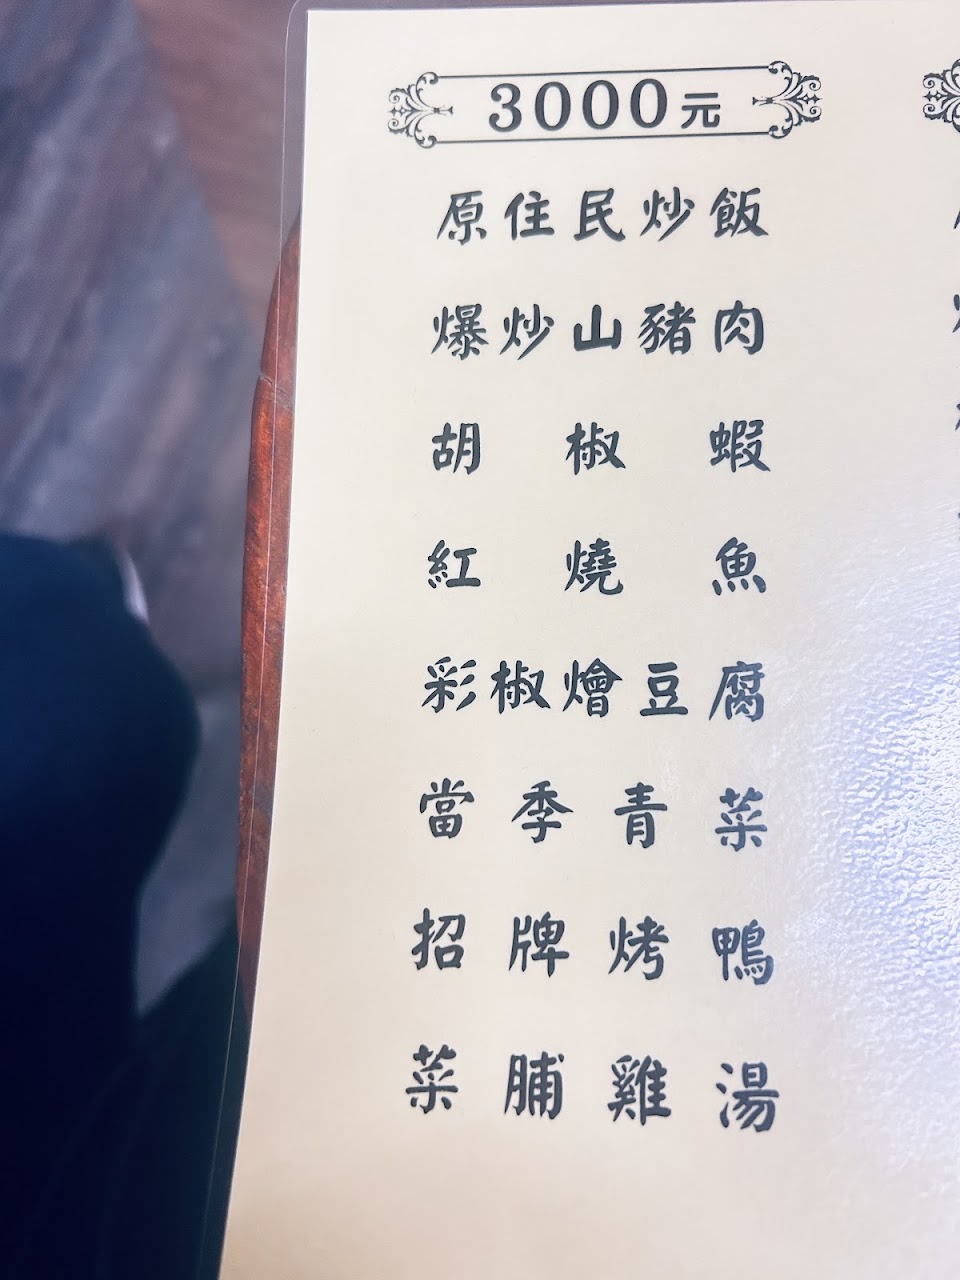 3000元
原住民炒飯
爆炒山豬肉
胡椒蝦
紅燒魚
彩椒燴豆腐
當季青菜
招牌烤鴨
菜脯雞湯